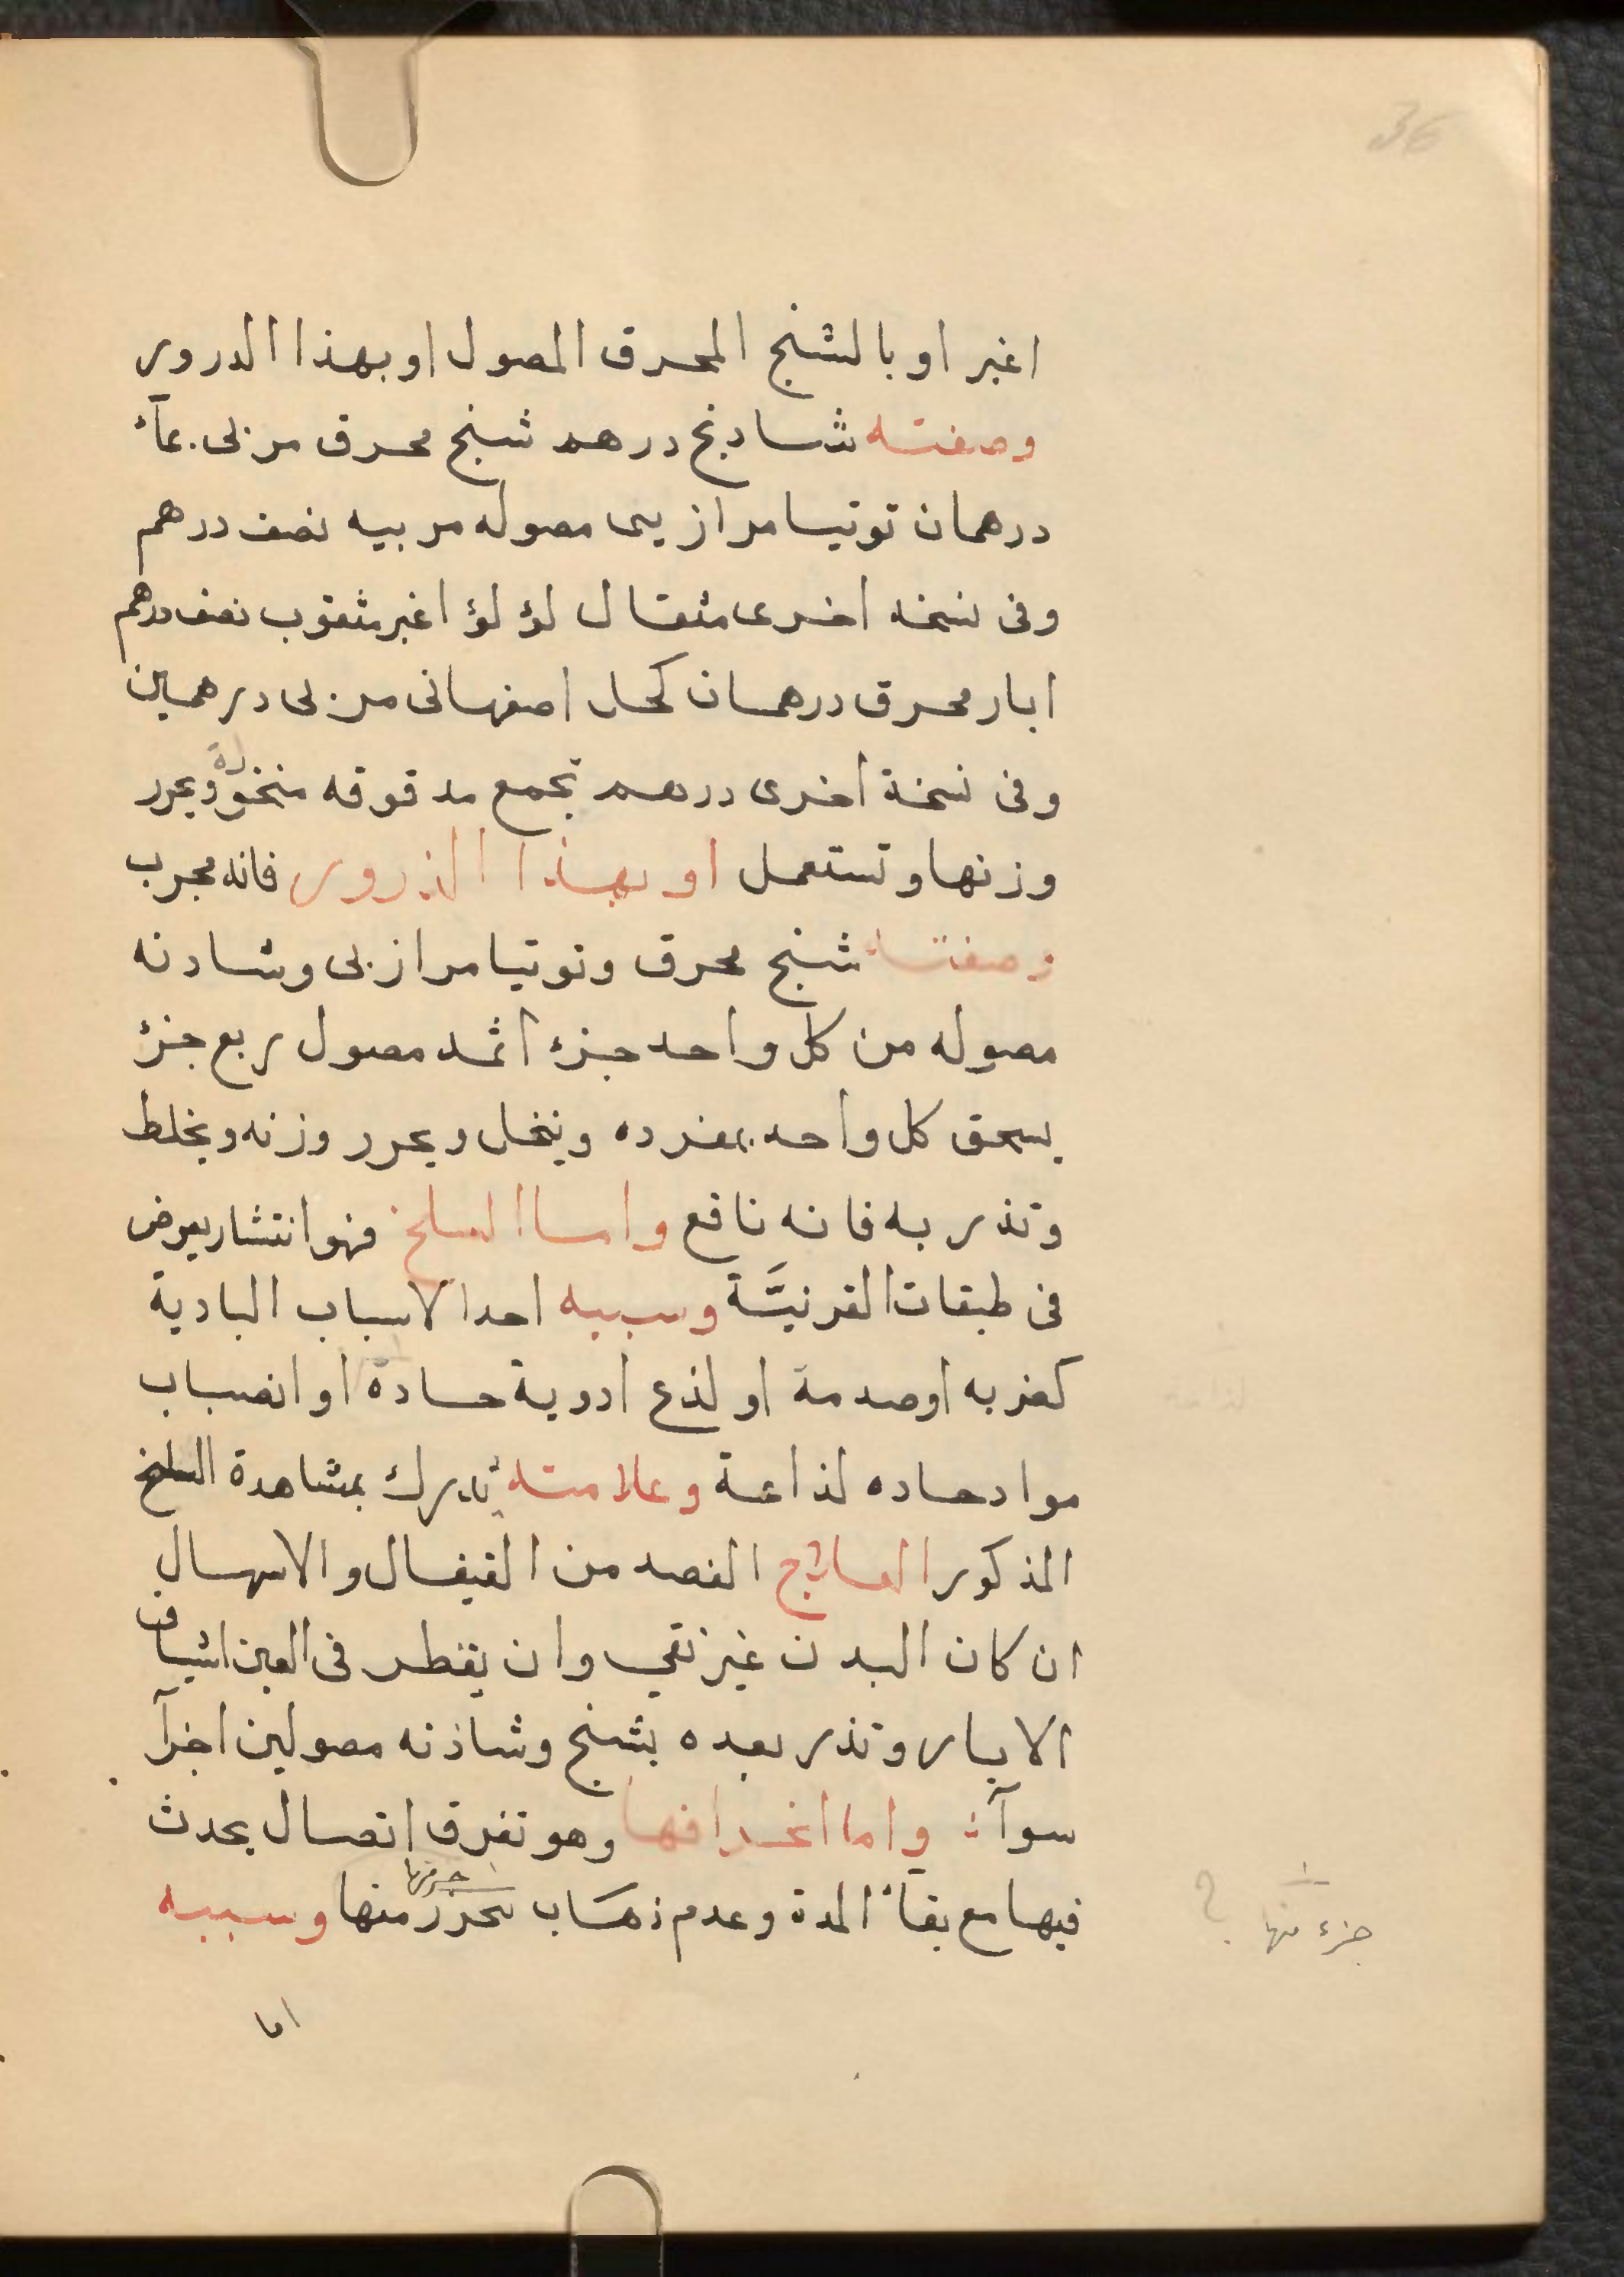 36
اغبر او بالشنج المحرق المصول او بهذا الدرور
وصفته شادنج درهم شنج محرق مربى بمآء
درهمان توتيا مرازبى مصوله مربيه نصف درهم
وفى نسخه اخرى مثقال لؤلؤا غير مثقوب نصف درهم
ابار محرق درهمان كحل اصفهانى مربى درهمين
وفى نسخة اخرى درهم تجمع مدقوقه منخولة ويحرر
وزنها وتستعمل او بهذا الذرور فانه مجرب
وصفته شنج محرق وتوتيا مرازبى وشادنه
مصوله من كل واحد جزء اثمد مصول ربع جزء
يسحق كل واحد بمفرده وينخل ويحرر وزنه ويخلط
وتذر به فانه نافع واما السلخ فهو انتشار يعرض
فى طبقات القرنيَّة وسببه احد الاسباب البادية
كضربه او صدمة او لذع ادوية حادة او انصباب
مواد حاده لذاعة وعلامته تدرك بمشاهدة السلخ
المذكور العلاج الفصد من القيفال والاسهال
ان كان البدن غير نقي وان يقطر فى العين اشياف
الابار وتذر بعده بشنج وشاذنه مصولين اجزآ
سوآء واما انخرافها وهو تفرق اتصال يحدث
فيها مع بقآء المدة وعدم ذهاب منها وسببه
جزء منها
اما